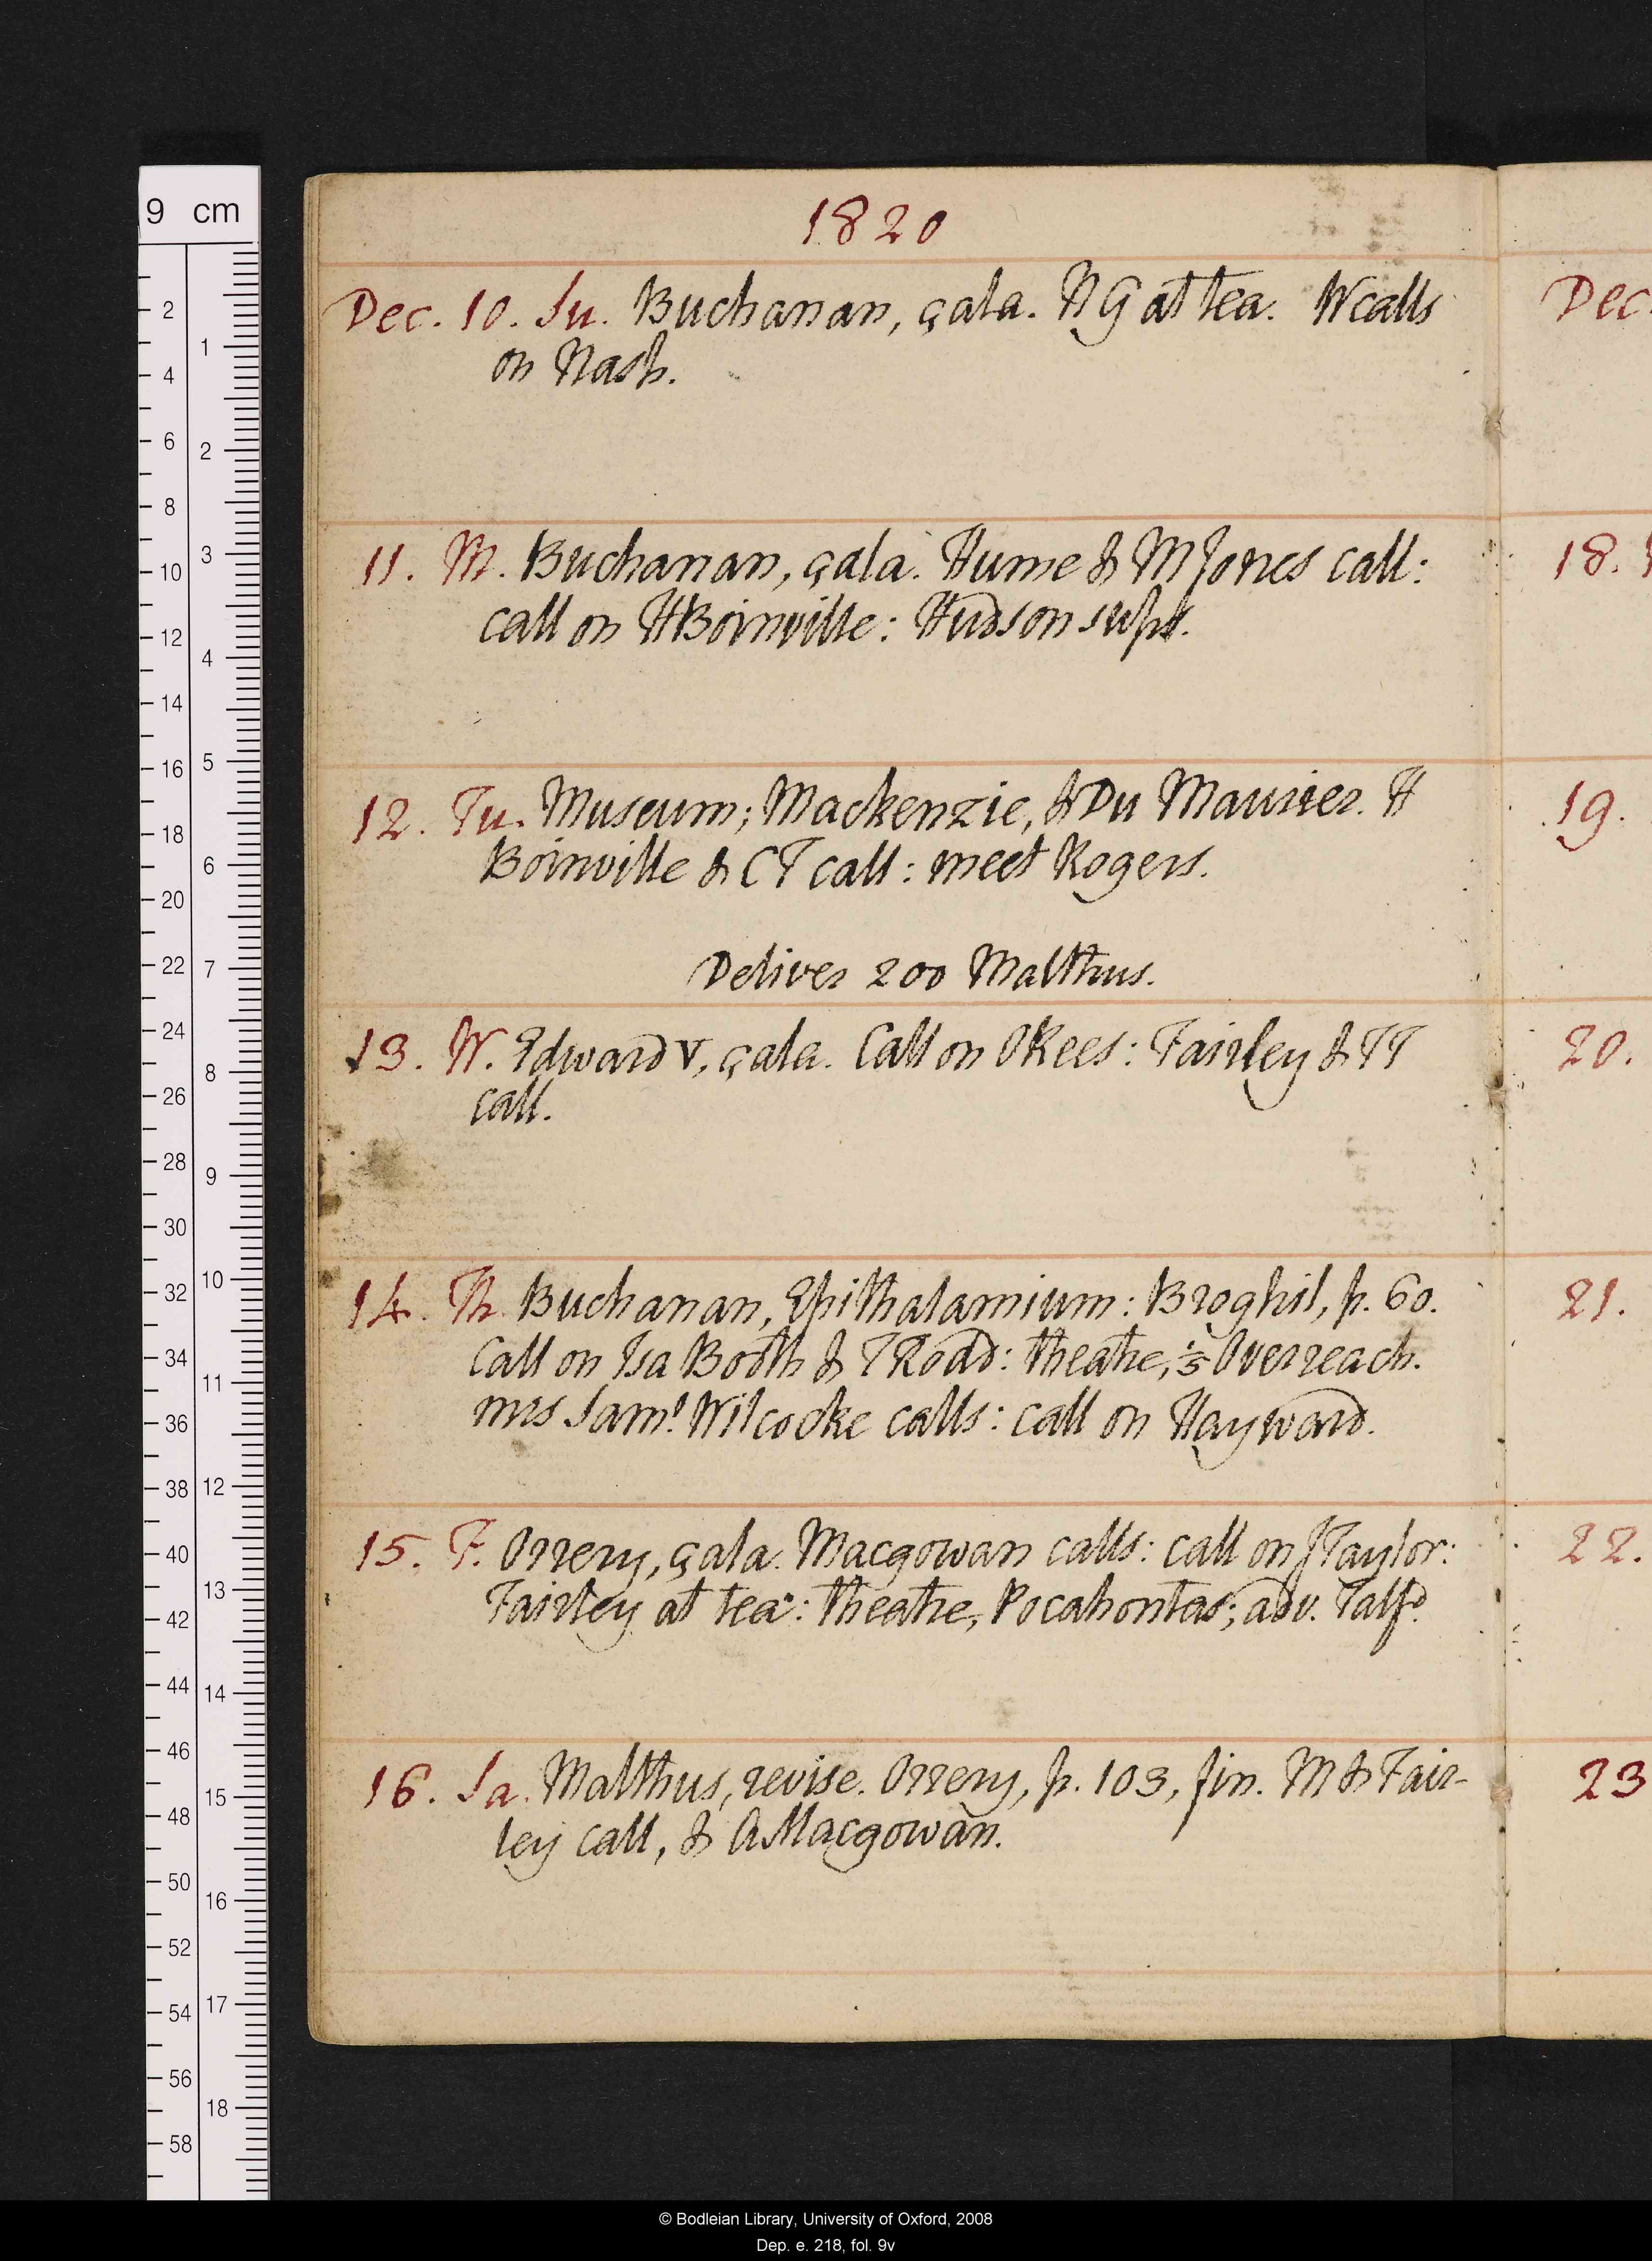 9 cm
1820
Dec. 10. Su. Buchanan, çala. N G at tea. W calls
on Nash.
11. M. Buchanan, çala. Hume & M Jones call:
call on H Boinville: Hudson sups.
12. Tu. Museum; Mackenzie, & Du Maurier. H
Boinville & C T call: meet Rogers.
Deliver 200 Malthus.
13. W. Edward V, çala. Call on O Rees: Fairley & T T
call.
14. Th. Buchanan, Epithalamium: Broghil, p. 60.
Call on Isa Booth & T Road: theatre, Overreach.
mrs Saml. Wilcocke calls: call on Hayward.
15. F. Orrery, çala. Macgowan calls: call on J Taylor:
Fairley at tea: theatre, Pocahontas; adv. Talfd.
16. Sa. Malthus, revise. Orrery, p. 103, fin. M & Fair-
ley call, & A Macgowan.
Dec.
18.
19.
20.
21.
22.
23
2
4
6
8
10
12
14
16
18
20
22
24
26
28
30
32
34
36
38
40
42
44
46
48
50
52
54
56
58
1
2
3
4
5
6
7
8
9
10
11
12
13
14
15
16
17
18
© Bodleian Library, University of Oxford, 2008
Dep. e. 218, fol. 9v